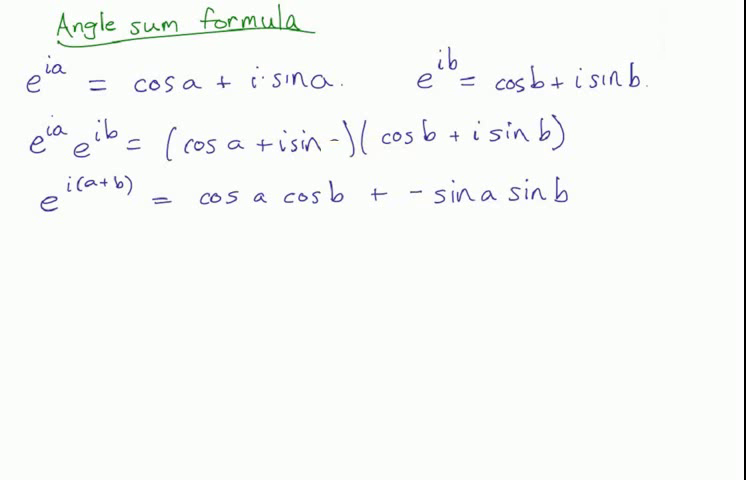 Angle sum formula
e^{ia} = cos a + i·sin a. e^{ib} = cos b + i sin b.
e^{ia} e^{ib} = (cos a + i sin -)(cos b + i sin b)
e^{i(a+b)} = cos a cos b + - sin a sin b